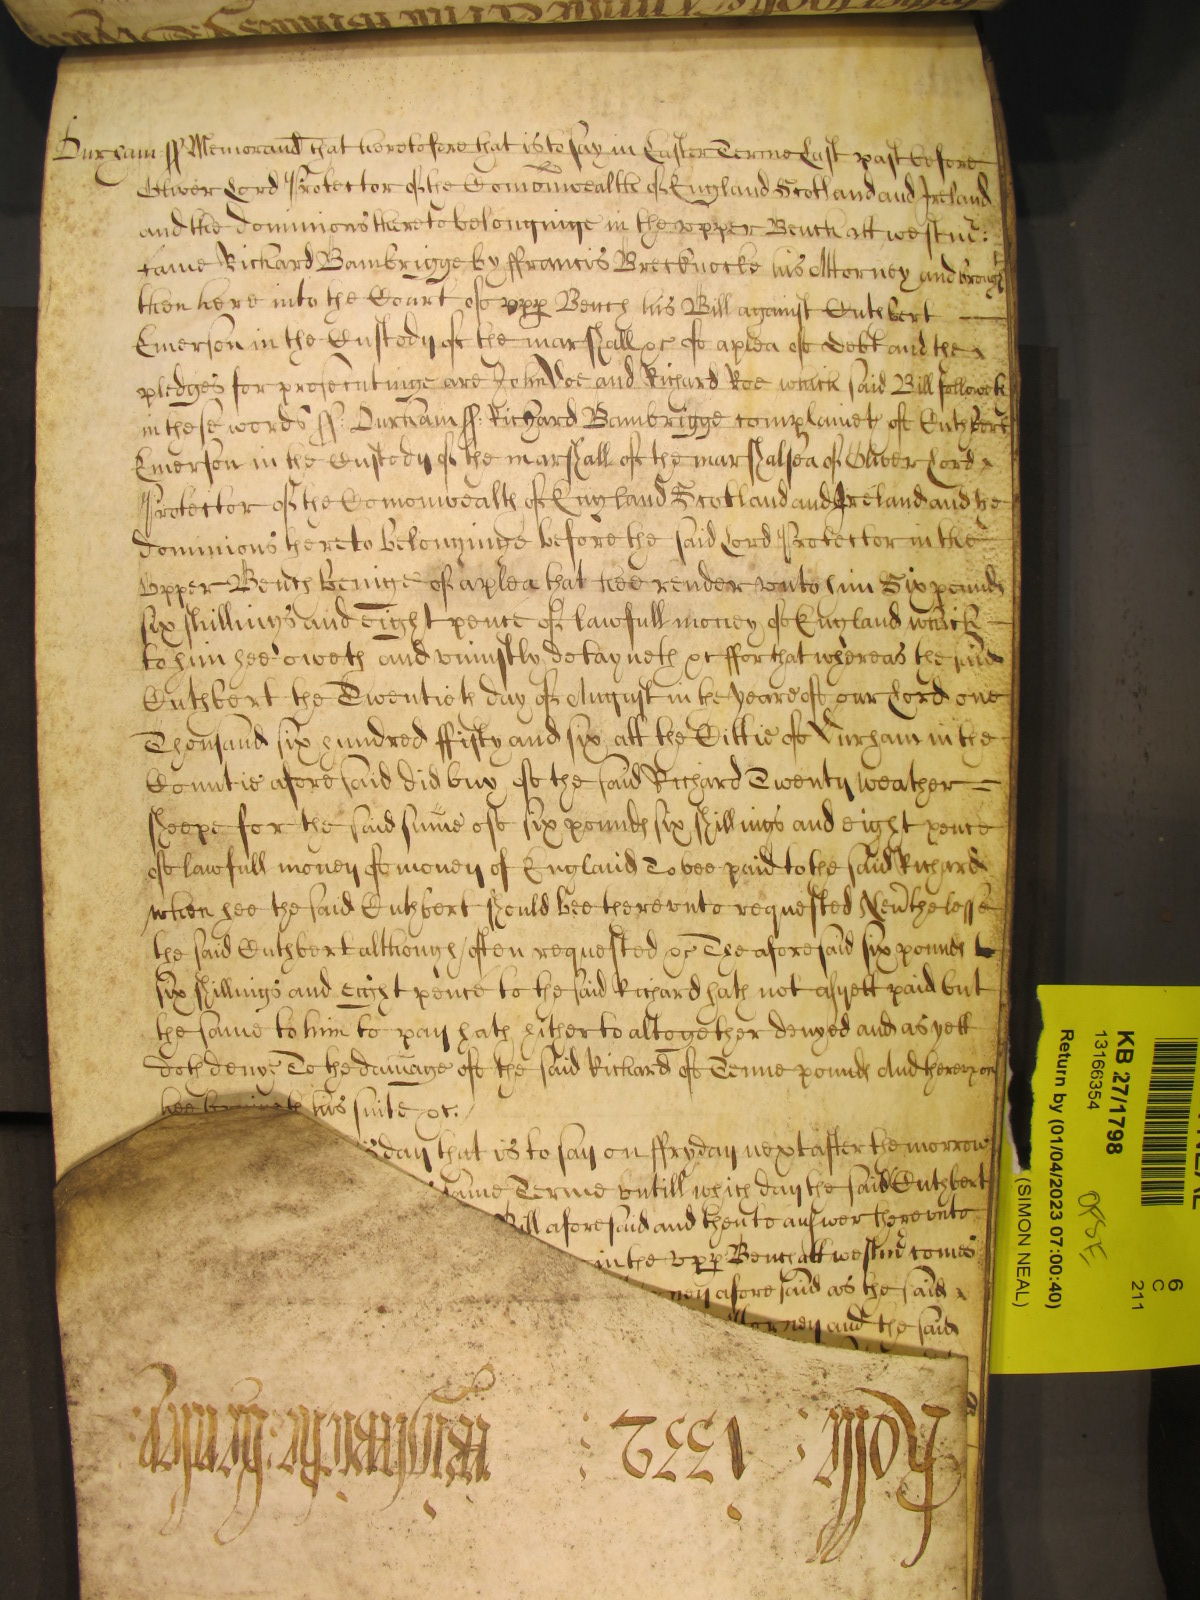 Durham ss Memorand that heretofore that is to say in Easter Terme Last past before
Oliver Lord Protector of the Comonwealth of England Scotland and Ireland
and the dominions thereto belonginge in the vpper Bench att westmr:
came Richard Bambrigge by ffrancis Brecknocke his Attorney and brought
then here into the Court of vpp Bench his Bill against Cuthbert
Emerson in the Custody of the marshall &c of a plea of debt and the
pledges for prosecutinge are John Doe and Richard Roe which said Bill followeth
in these words ss: Durham ss. Richard Bambrigge complaineth of Cuthbert
Emerson in the Custody of the marshall of the marshalsea of Oliver Lord
Protector of the Comonwealth of England Scotland and Ireland and the
dominions hereto belonginge before the said Lord Protector in the
Vpper Bench beinge of a plea that hee render vnto him Six pounds
six shillings and Eight pence of lawfull money of England which
to him hee oweth and vniustly detayneth &c ffor that whereas the said
Cuthbert the Twentieth day of August in the yeare of our Lord one
Thousand six hundred ffifty and six att the Cittie of Durham in the
Countie aforesaid did buy of the said Richard Twenty weather
sheepe for the said sume of six pounds six shillings and eight pence
of lawfull money of money of England To bee paid to the said Richard
when hee the said Cuthbert should bee therevnto requested Neuthelesse
the said Cuthbert although often requested &c The aforesaid six pounds
six shillings and eight pence to the said Richard hath not as yett paid but
the same to him to pay hath hitherto altogether denyed and as yett
doth deny To the damage of the said Richard of Tenne pounds And herevpon
hee bringeth his suite &c.
day that is to say on ffryday next after the morrow
same Terme vntill which day the said Cuthbert
Bill aforesaid and then to answer therevnto
in the vpp Bench att westmr comes
ney aforesaid as the said
Attorney and the said
Roll : 1552 :
KB 27/1798
13166354
Return by (01/04/2023 07:00:40)
(SIMON NEAL)
6
C
211